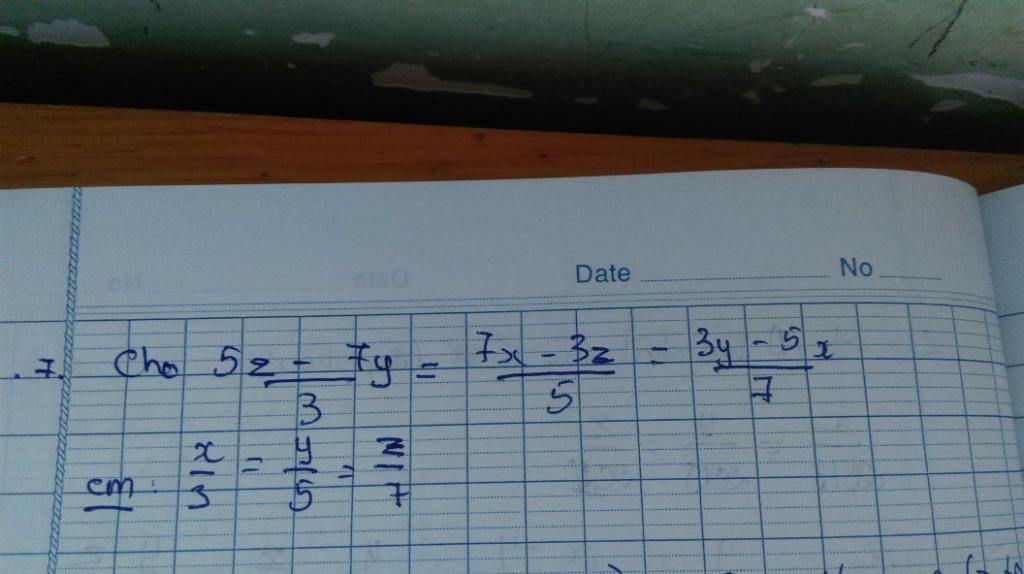 Date No
.7. Cho 5z - 7y / 3 = 7x - 3z / 5 = 3y - 5x / 7
cm: x/3 = y/5 = z/7